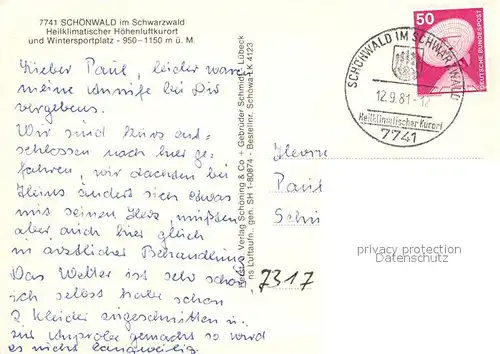 7741 SCHÖNWALD im Schwarzwald
Heilklimatischer Höhenluftkurort
und Wintersportplatz - 950-1150 m ü. M.
Lieber Paul, leider waren
meine Anrufe bei Dir
vergebens.
Wir sind kurz ent-
schlossen nach hier ge-
fahren, wir dachten bei
Heins ändert sich etwas
mit seinen Herz, mußten
aber auch hier gleich
in ärztlicher Behandlung
Das Wetter ist sehr schön,
ich selbst habe schon
2 Kleider zugeschnitten u.
zur Anprobe gemacht so wird
es nicht langweilig.
Verlag Schöning & Co + Gebrüder Schmidt, Lübeck
ns Luftaufn., gen. SH 1-80874 - Bestellnr. Schowa LK 4123
50
DEUTSCHE BUNDESPOST
SCHÖNWALD IM SCHWARZWALD
12.9.81-12
Heilklimatischer Kurort
7741
Herrn
Paul
7317
privacy protection
Datenschutz